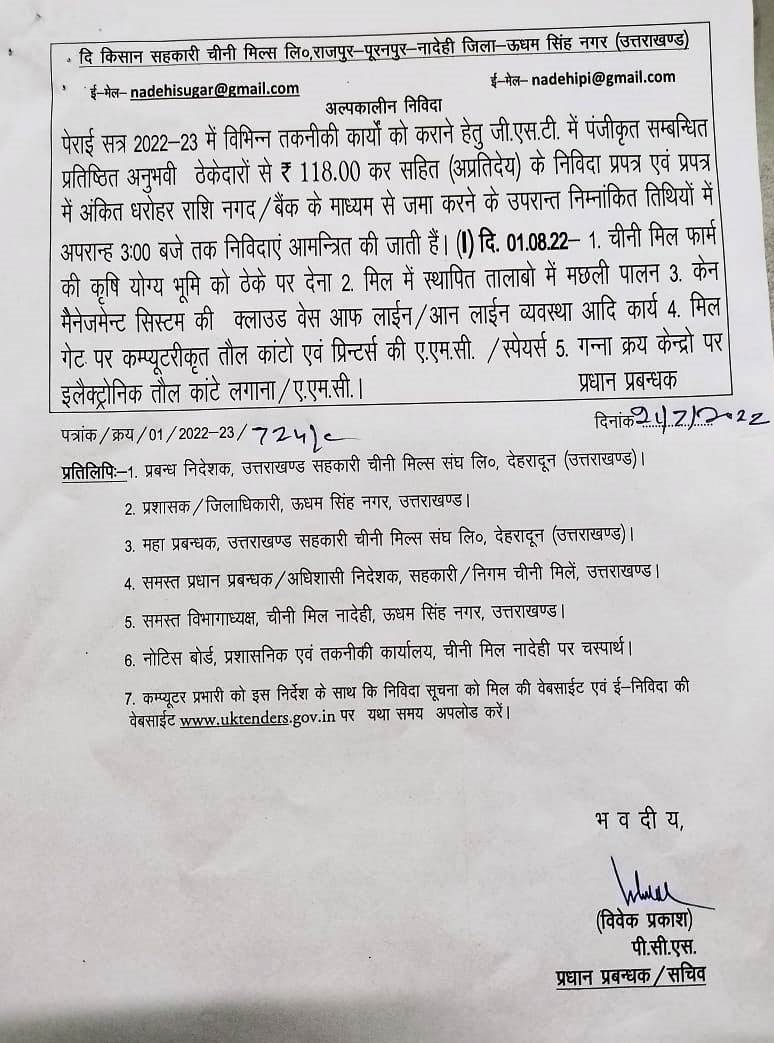 दि किसान सहकारी चीनी मिल्स लि०,राजपुर–पूरनपुर–नादेही जिला–ऊधम सिंह नगर (उत्तराखण्ड)
ई–मेल– nadehisugar@gmail.com ई–मेल– nadehipi@gmail.com
अल्पकालीन निविदा
पेराई सत्र 2022–23 में विभिन्न तकनीकी कार्यो को कराने हेतु जी.एस.टी. में पंजीकृत सम्बन्धित
प्रतिष्ठित अनुभवी ठेकेदारों से ₹ 118.00 कर सहित (अप्रतिदेय) के निविदा प्रपत्र एवं प्रपत्र
में अंकित धरोहर राशि नगद/बैंक के माध्यम से जमा करने के उपरान्त निम्नांकित तिथियों में
अपरान्ह 3:00 बजे तक निविदाएं आमन्त्रित की जाती हैं। (I) दि. 01.08.22– 1. चीनी मिल फार्म
की कृषि योग्य भूमि को ठेके पर देना 2. मिल में स्थापित तालाबो में मछली पालन 3. केन
मैनेजमेन्ट सिस्टम की क्लाउड वेस आफ लाईन/आन लाईन व्यवस्था आदि कार्य 4. मिल
गेट पर कम्प्यूटरीकृत तौल कांटो एवं प्रिन्टर्स की ए.एम.सी. /स्पेयर्स 5. गन्ना क्रय केन्द्रो पर
इलैक्ट्रोनिक तौल कांटे लगाना/ए.एम.सी.। प्रधान प्रबन्धक
पत्रांक/क्रय/01/2022–23/724/c दिनांक 21/7/2022
प्रतिलिपिः–1. प्रबन्ध निदेशक, उत्तराखण्ड सहकारी चीनी मिल्स संघ लि०, देहरादून (उत्तराखण्ड)।
2. प्रशासक/जिलाधिकारी, ऊधम सिंह नगर, उत्तराखण्ड।
3. महा प्रबन्धक, उत्तराखण्ड सहकारी चीनी मिल्स संघ लि०, देहरादून (उत्तराखण्ड)।
4. समस्त प्रधान प्रबन्धक/अधिशासी निदेशक, सहकारी/निगम चीनी मिलें, उत्तराखण्ड।
5. समस्त विभागाध्यक्ष, चीनी मिल नादेही, ऊधम सिंह नगर, उत्तराखण्ड।
6. नोटिस बोर्ड, प्रशासनिक एवं तकनीकी कार्यालय, चीनी मिल नादेही पर चस्पार्थ।
7. कम्प्यूटर प्रभारी को इस निर्देश के साथ कि निविदा सूचना को मिल की वेबसाईट एवं ई–निविदा की
वेबसाईट www.uktenders.gov.in पर यथा समय अपलोड करें।
भ व दी य,
(विवेक प्रकाश)
पी.सी.एस.
प्रधान प्रबन्धक/सचिव